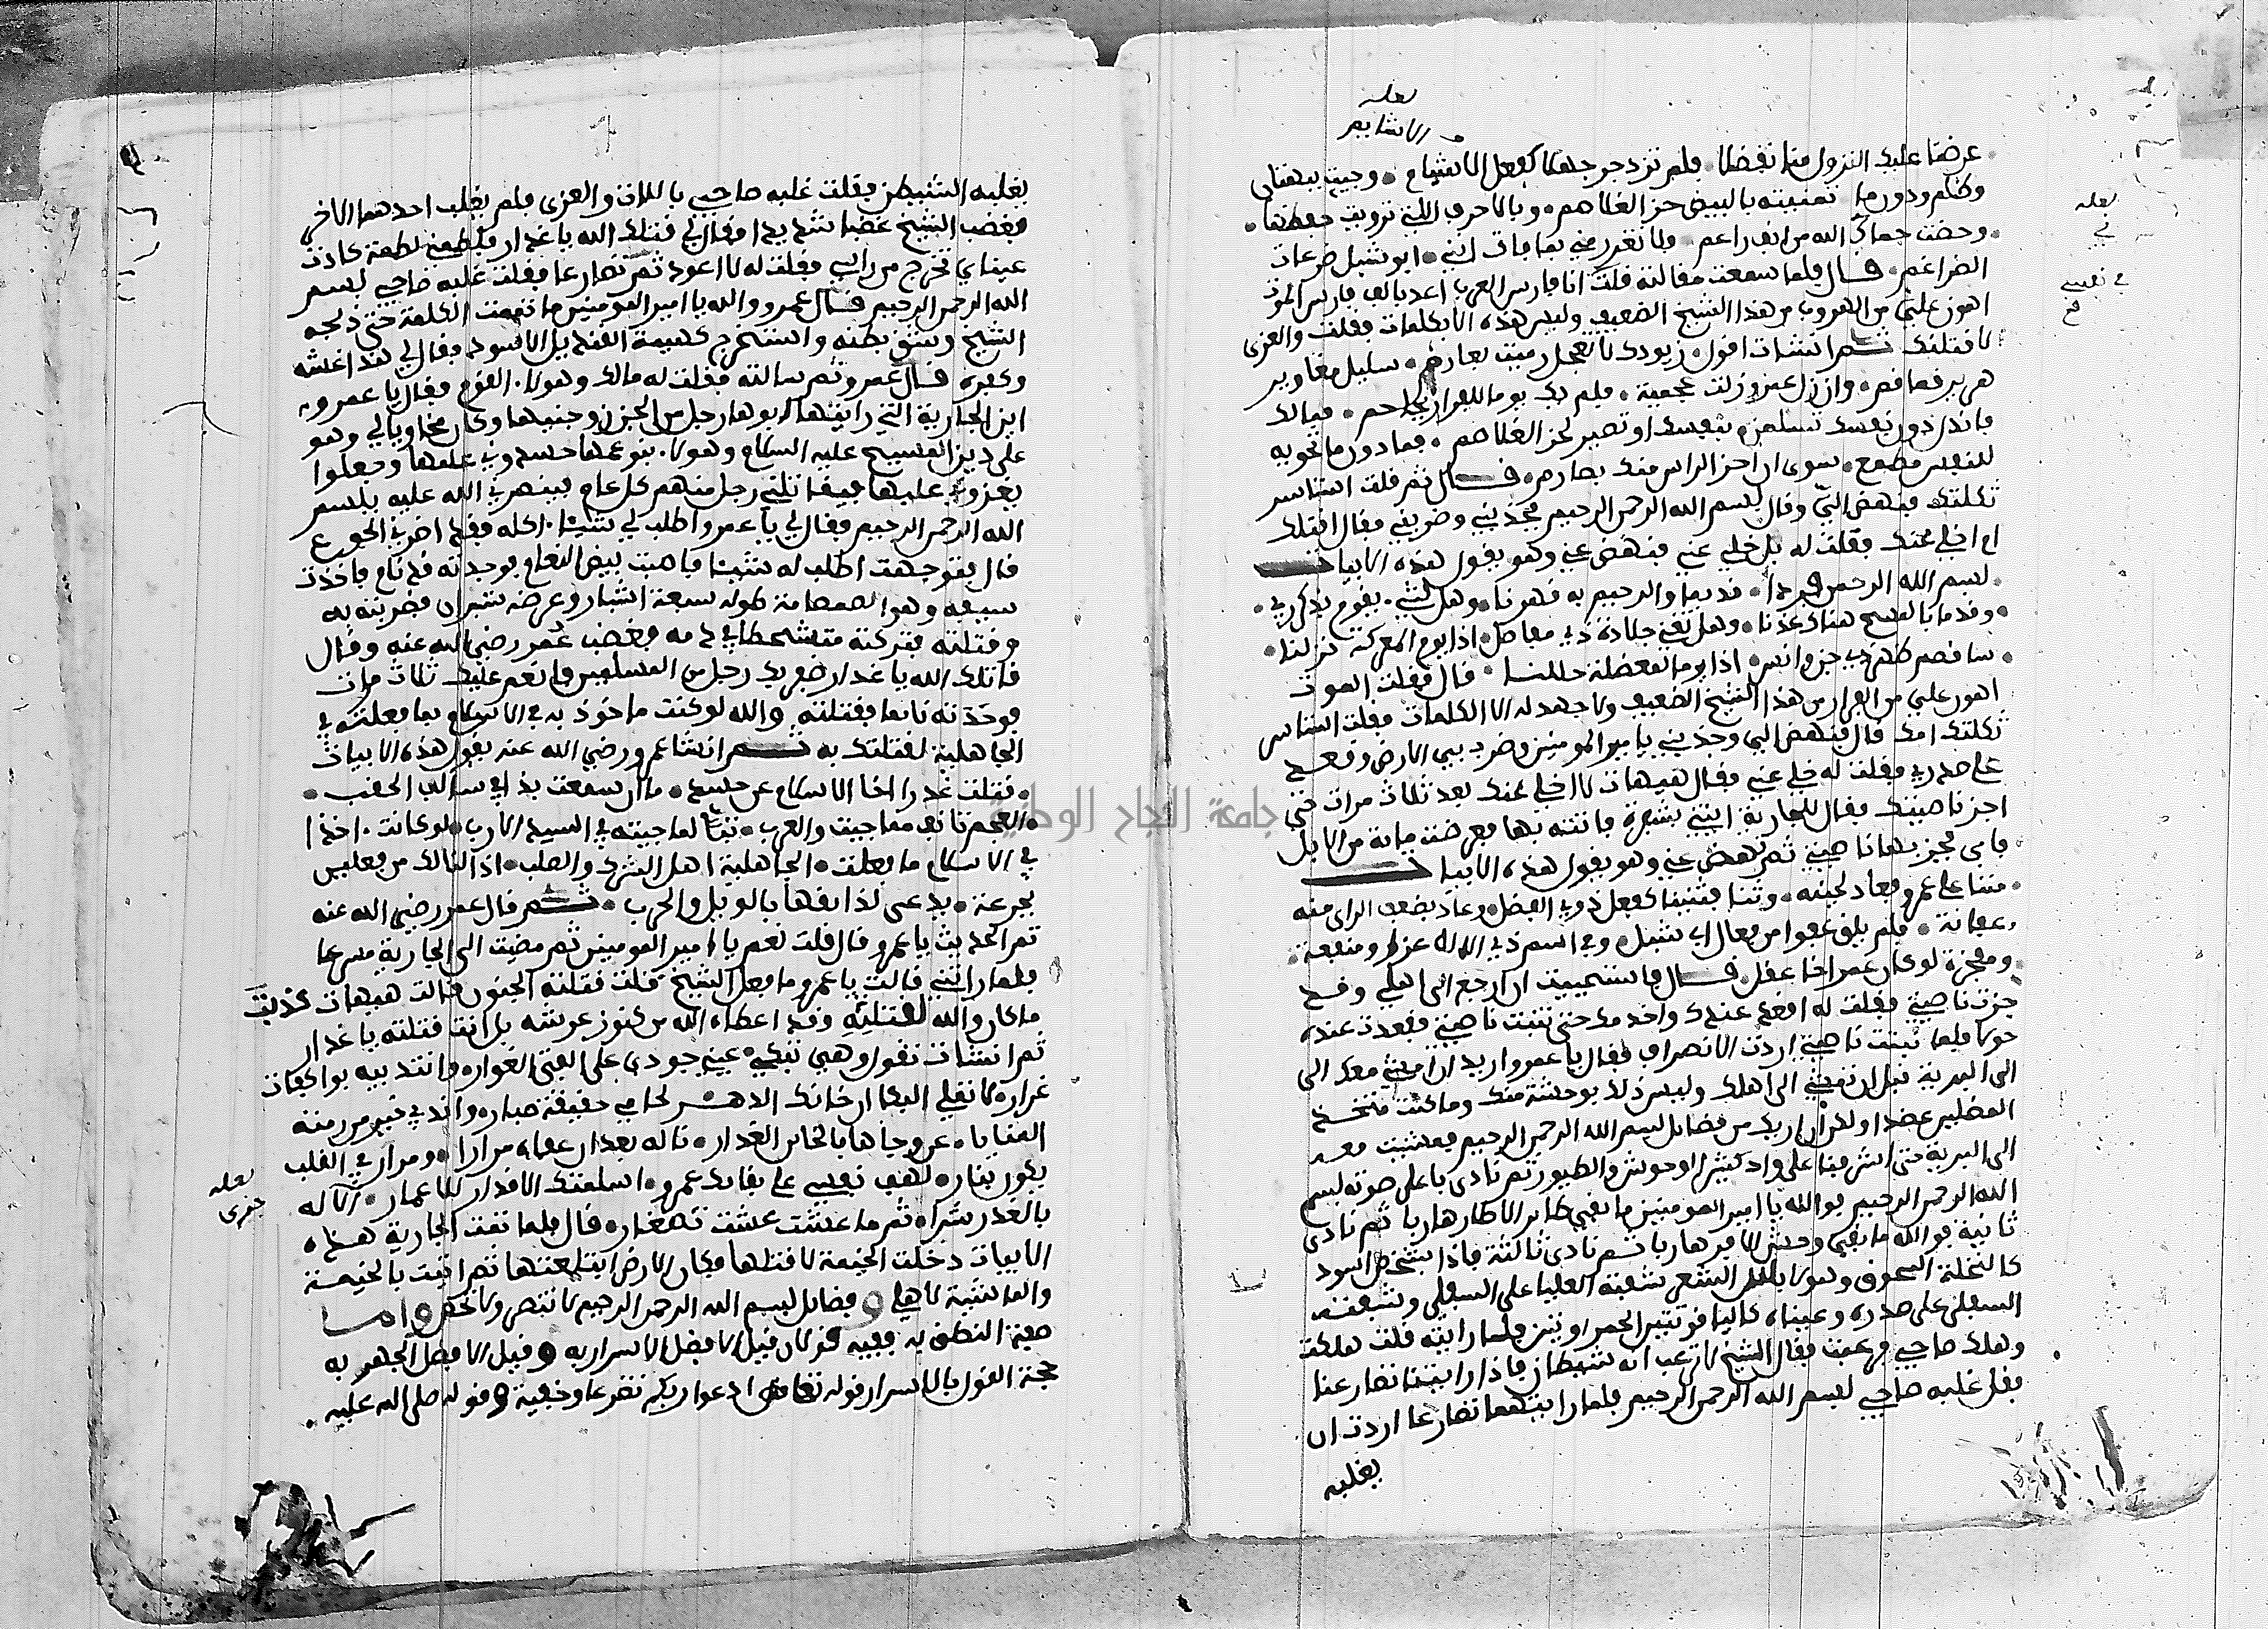 لعله
الاشايم
عرضنا عليك النزول منا تفضلا. فلم تزدجر جهلا كفعل الاشيام. وجيت ببهتان
وظلم ودون ما تمنيته بالبيض حز الغلاصم. وبالاحرف اللتي ترويت حفظها.
لعله
في
الضراغم. قال فلما سمعت مقالته قلت انا فارس العرب اعد بالف فارس الموت
في نفسي
اهون علي من الهروب من هذا الشيخ الضعيف وليس هذه الا كلمات فقلت والعزى
لاقتلنك ثم انشات اقول. رميت بصارم. سليل مغاوير
فاندن دون نفسك تسلمن بنفسك او تصير لحز الغلاصم. فما دون ما تحويه
للنفس مطمع. سوى ان احز الراس منك بصارم. قال ثم قلت استاسر
ثكلتك فنهض الي وقال بسم الله الرحمن الرحيم فجذبني وضربني فقال اقتلك
ام اخلي عنك فقلت له بل خلي عني فنهض عني وهو يقول هذه الابيات
بسم الله الرحمن فزنا. قديما والرحيم به قهرنا. وهل شي. يقوم بذكر ربي.
وهل تغني جلادة ذي مفاصل. اذا يوم المعركة نزلنا.
اذا يوما لمعضلة حللنا. قال فقلت الموت
اهون علي من الفرار من هذا الشيخ الضعيف ولا جهد له الا الكلمات فقلت استاسر
ثكلتك امك قال فنهض الي وجذبني يا امير المومنين وضرب بي الارض وقعد
على صدري فقلت له خلي عني فقال هيهات لا اخلي عنك بعد ثلاث مرات حتى
اجز ناصيتك فقال للجارية ايتني بشفرة فاتته بها فعرضت ماية من الابل
فابى فجز بها ناصيتي ثم نهض عني وهو يقول هذه الابيات
مننا على عمرو فعاد لحينه. وثنا فثنينا كفعل ذوي الفضل. وعاد بضعف الراي منه
وعقلنه. فلم يلق عفوا من فعال ابي شبل. وفي اسم ذي الالاء عز ومنعة.
ومفخرة لو كان عمرا اخا عقل. قال فاستحييت ان ارجع الى اهلي وقد
جزت ناصيتي فقلت له اقعد عندك واخدمك حتى تنبت ناصيتي فقعدت عنده
حولا فلما نبتت ناصيتي اردت الانصراف فقال يا عمرو اريد ان امضي معك الى
الى البرية قبل ان تمضي الى اهلك وليس ذلك بوحشة منك وما كنت متخذ
المضلين عضدا ولكن اريك من فضائل بسم الله الرحمن الرحيم فمشيت معه
الى البرية حتى اشرفنا على واد كثير الوحوش والطيور ثم نادى باعلى صوته بسم
الله الرحمن الرحيم فوالله يا امير المومنين ما بقي طاير الا طار هاربا ثم نادى
ثانية فوالله ما بقي وحش الا فر هاربا ثم نادى ثالثة فاذا بشخص اسود
كالنخلة السحوق وهو لابس الشعر شفته العليا على السفلى وشفته
السفلى على صدره وعيناه كالياقوتتين الحمراوتين فلما رايته قلت هلكت
وهلك صاحبي فرعبت فقال الشيخ لا ترعب انه شيطان فاذا رايتنا تصارعنا
فقل غلبه صاحبي ببسم الله الرحمن الرحيم فلما رايتهما تصارعا اردت ان
يغلبه
يغلبه الشيطن فقلت غلبه صاحبي باللات والعزى فلم يغلب احدهما الاخر
فغضب الشيخ غضبا شديدا وقال لي قتلك الله يا غدار فلطمني لطمة كادت
عيناي تخرج من راسي فقلت له لا اعود ثم تصارعا فقلت غلبه صاحبي ببسم
الله الرحمن الرحيم قال عمرو والله يا امير المومنين ما تممت الكلمة حتى ذبحه
الشيخ وشق بطنه واستخرج كهيئة القنديل الاسود فقال لي هذا غشه
وكفره قال عمرو ثم سالته فقلت له مالك وهولا. القوم فقال يا عمرو
ان الجارية التي رايتها ابوها رجل من الجن زوجنيها وكان مخاويا لي وهو
على دين المسيح عليه السلام وهولا. بنو عمها حسدوني عليها وجعلوا
يغزوني عليها فيقاتلني رجل منهم كل عام فينصرني الله عليه ببسم
الله الرحمن الرحيم فقال لي يا عمرو اطلب لي شيئا. اكله فقد اضر بي الجوع
قال فتوجهت اطلب له شيئا فاصبت بيض النعام فوجدته قد نام فاخذت
سيفه وهو الصمصامة طوله سبعة اشبار وعرضه شبران فضربته به
وقتلته فتركته متشحطا في دمه فغضب عمر رضي الله عنه وقال
قاتلك الله يا غدار ظفر بك رجل من المسلمين وانعم عليك ثلاث مرات
فوجدته نائما فقتلته والله لو كنت ماخوذ به في الاسلام بما فعلته في
الجاهلية لقتلتك به ثم انشا عمر رضي الله عنه يقول هذه الابيات
قتلت غدرا اخا الاسلام عن حسد. ما ان سمعت بذا في سالف الحقب.
العجم تانف مما جيت والعرب. تبا لما جيته في السيد الارب. لو كانت. اخذا
في الاسلام ما فعلت. الجاهلية اهل الشرك والصلب. اذا لنالك من فعلين
بجرعة. يدعى لذايقها بالويل والحرب. ثم قال عمر رضي الله عنه
تمم الحديث يا عمرو قال قلت نعم يا امير المومنين ثم مضيت الى الجارية مسرعا
فلما راتني قالت يا عمرو ما فعل الشيخ قلت قتلته الجنون قالت هيهات كذبت
ما كان والله لتقتليه وقد اعطاه الله من كنوز عرشه بل انت قتلته يا غدار
ثم انشات تقول وهي تبكي. عيني جودي على الفتى المغوار. واندبيه بواكفات
غزار. لا تملي البكا ان خانك الدهر لحامي حقيقة صبار. واندبي خير من رمته
المنايا. عن وجاها بالخاين الغدار.
لعله
جفرى
يكون بنار. لهف نفسي على بقايك عمرو. اسلمتك الاقدار للاعمار. الا له
بالغدر شرا. ثم ما عشت عشت تصغار. قال فلما تمت الجارية هذه
الابيات دخلت الخيمة لاقتلها فكان الارض ابتلعتها ثم اتيت بالخيمة
والماشية لاهلي وفضائل بسم الله الرحمن الرحيم لا تنحصر ولا تحصى واما
صفة النطق به ففيه قولان قيل الافضل الاسرار به وقيل الافضل الجهر به
حجة القول بالاسرار قوله تعالى ادعوا ربكم تضرعا وخفية وقوله صلى الله عليه